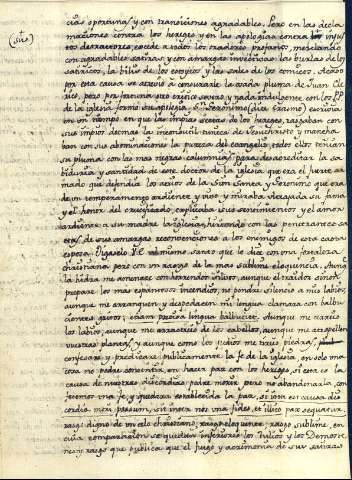 cias oportunas, y con transiciones agradables. Pero en las decla-
maciones contra los hereges y en las apologias contra los injus-
tos detractores, excede a todos los oradores profanos, mezclando
con agradables satiras y con amargas invectivas las burlas de los
satiricos, la bilis de los y las sales de los comicos.
por esta causa se atrevió a censurarle la pluma de Juan Cle
pero por fortuna que existe serena y nada indulgente con los P.P.
de la iglesia formó su apologia. S. Geronimo (dice Erasmo) escrivia
en un tiempo en que las impias sectas de los hereges, rasgaban con
sus impios la inconsutil tunica de Jesuchristo y mancha-
ban con sus abominaciones la pureza del evangelio, todos ellos tenian
su pluma con las mas negras calumnias, para desacreditar la sa-
biduria y santidad de este doctor de la iglesia que era el fuerte ar-
mado que defendia los atrios de la Sion Santa y Geronimo que era
de un temperamento ardiente y vivo y miraba ultrajada su fama
y el honor del crucificado, explicaba sus sentimientos y el amor
ardiente a su madre la iglesia, hiriendo con las penetrantes sa
etas de sus amargas reconvenciones a los enemigos de esta casta
esposa. Digaselo V.E. rabinismo santo que le dice con una fortaleza
christiana pero con un rasgo de la mas sublime eloquencia. Aunq.
la hidra me amenaze con ardientes silvos, aunque el traidor sinon
prepare los mas espantosos incendios, no pondra silencio a mis labios,
aunque me arranquen y despedacen mi lengua clamara con balbu-
cientes gritos; etiam precisa lingua balbutiet. Aunque me cerreis
los labios, aunque me arrastreis de los cabellos, aunque me atropellen
vuestras plantas, y aunque como los judios me tireis piedras,
confesare y predicare publicamente la fe de la iglesia, en solo una
cosa no podre consentir, en hacer paz con los hereges, si esta es la
causa de nuestras discordias podre morir pero no abandonarla, con-
fesemos una fe, y quedara establecida la paz, si ista est causa dis
cordiæ mori possum, sin inter nos una fides, et illico pax sequetur,
rasgo digno de un celo christiano, rasgo eloquente, rasgo sublime, en
cuya comparacion se quedan inferiores los Tulios y los Demoste-
nes y rasgo que publica que el fuego y acrimonia de sus satiras